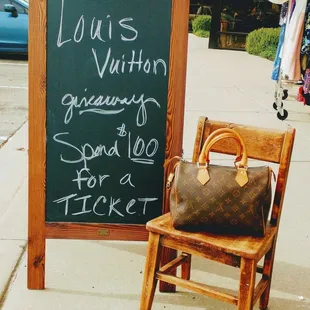 Louis
Vuitton
giveaway
Spend $100
for a
TICKET